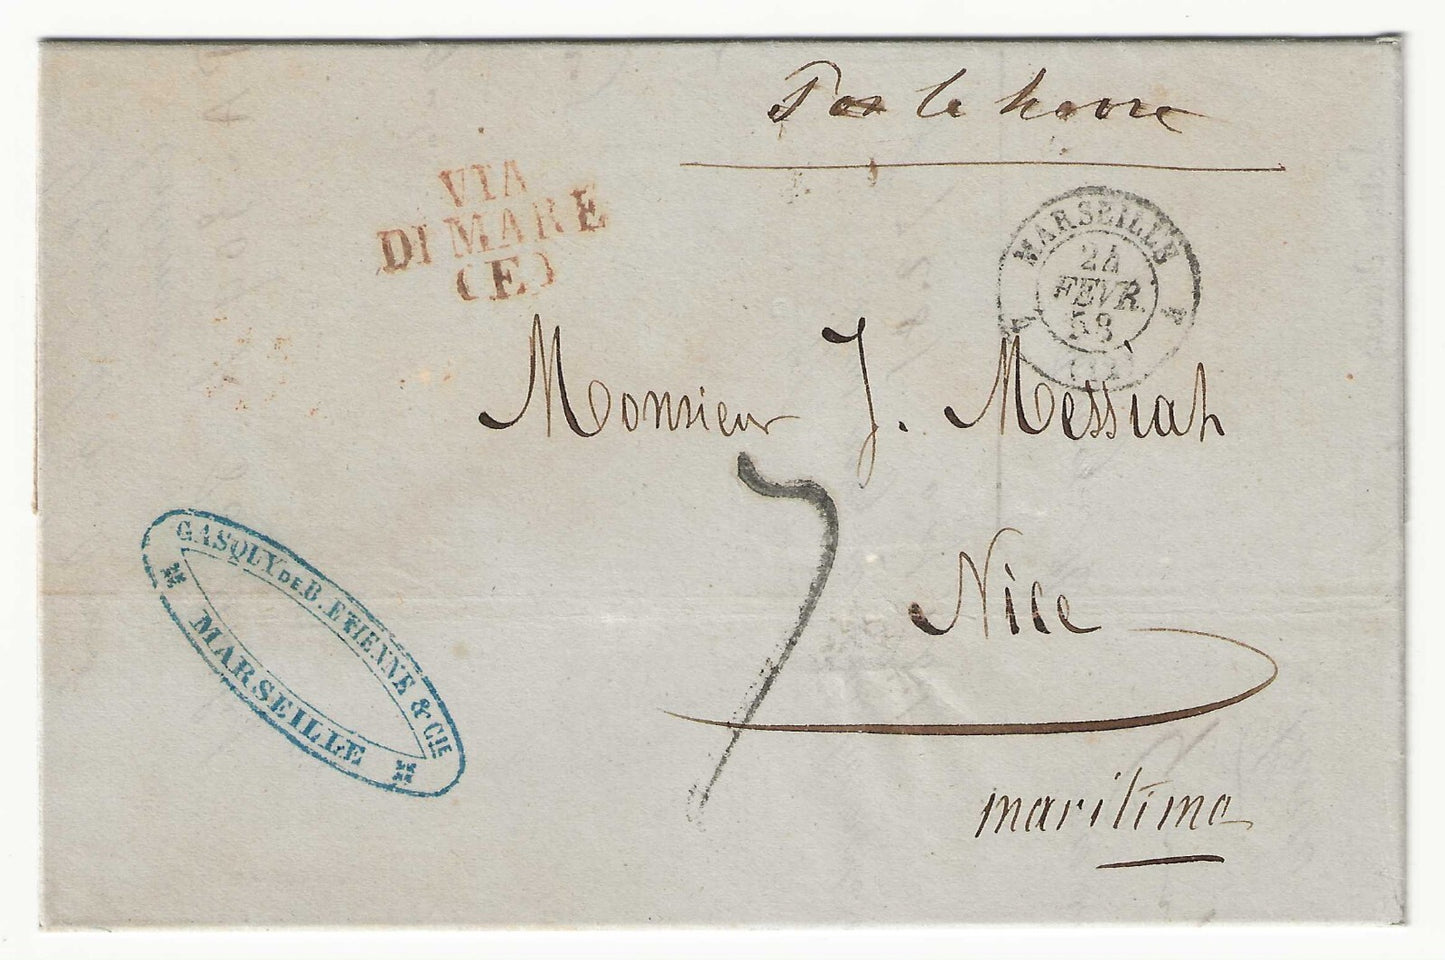 Par le havre
VIA
DI MARE
(E)
MARSEILLE
24
FEVR.
58
(12)
Monsieur J. Messiah
Nice
maritime
GASQUY DE B. ETIENNE & CIE
MARSEILLE